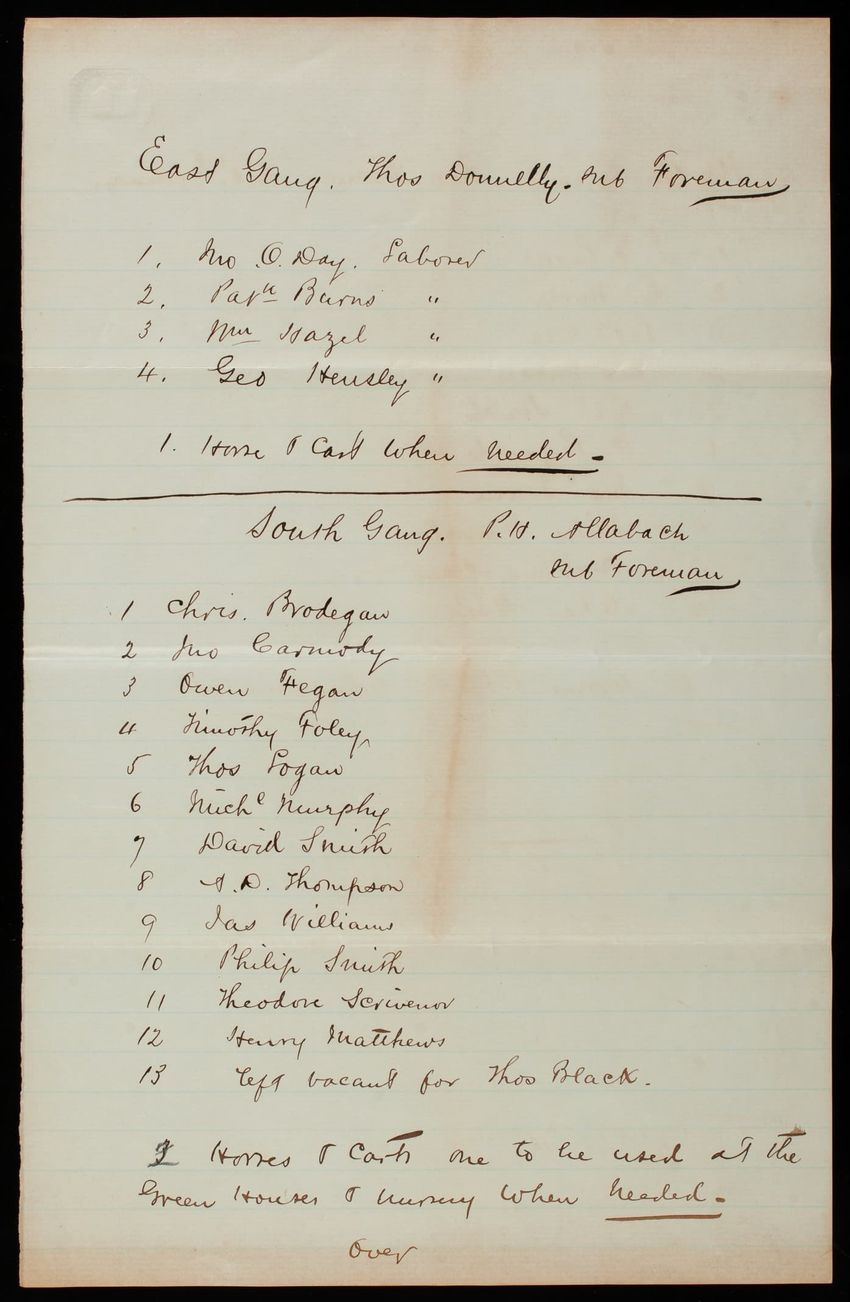 East Gang. Thos Donnelly. Sub Foreman
1. Jno O. Day. Laborer
2. Patk Burns "
3. Wm Hazel "
4. Geo Hensley "
1. Horse & Cart when needed -
South Gang. P.H. Allabach
Sub Foreman
1 Chris. Brodegan
2 Jno Carmody
3 Owen Fegan
4 Timothy Foley
5 Thos Logan
6 Michl Murphy
7 David Smith
8 A.D. Thompson
9 Jas Williams
10 Philip Smith
11 Theodore Scrivenor
12 Henry Matthews
13 left vacant for Thos Black.
Horses & Carts one to be used at the
Green Houses & nursery when needed -
Over